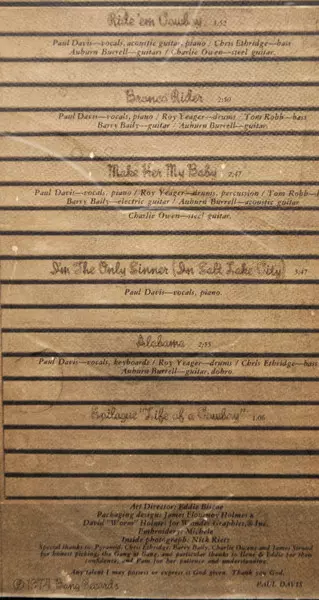 Ride 'em Cowboy 3:52
Paul Davis—vocals, acoustic guitar, piano / Chris Ethridge—bass
Auburn Burrell—guitars / Charlie Owen—steel guitar.
Bronco Rider
Paul Davis—vocals, piano / Roy Yeager—drums / Tom Robb—bass
Barry Baily—guitar / Auburn Burrell—guitar.
Make Her My Baby 2:47
Paul Davis—vocals, piano / Roy Yeager—drums, percussion / Tom Robb—b
Barry Baily—electric guitar / Auburn Burrell—acoustic guitar
Charlie Owen—steel guitar.
I'm The Only Sinner (In Salt Lake City) 3:47
Paul Davis—vocals, piano.
Alabama 2:55
Paul Davis—vocals, keyboards / Roy Yeager—drums / Chris Ethridge—bass
Auburn Burrell—guitar, dobro.
Epilogue "Life of a Cowboy" 1:06
Art Director: Eddie Biscoe
Packaging design: James Flournoy Holmes &
David "Worm" Holmes for Wonder Graphics, Inc.
Embroidery: Michele
Inside photograph: Nick
Special thanks to: Pyramid, Chris Ethridge, Barry Baily, Charlie Owens and James Stroud
for honest pickings; the Gang at Bang, and particular thanks to Ilene & Eddie for their
confidence, and Pam for her patience and understanding.
Any talent I may possess or express is God given. Thank you God.
© 1974 Bang Records PAUL DAVIS